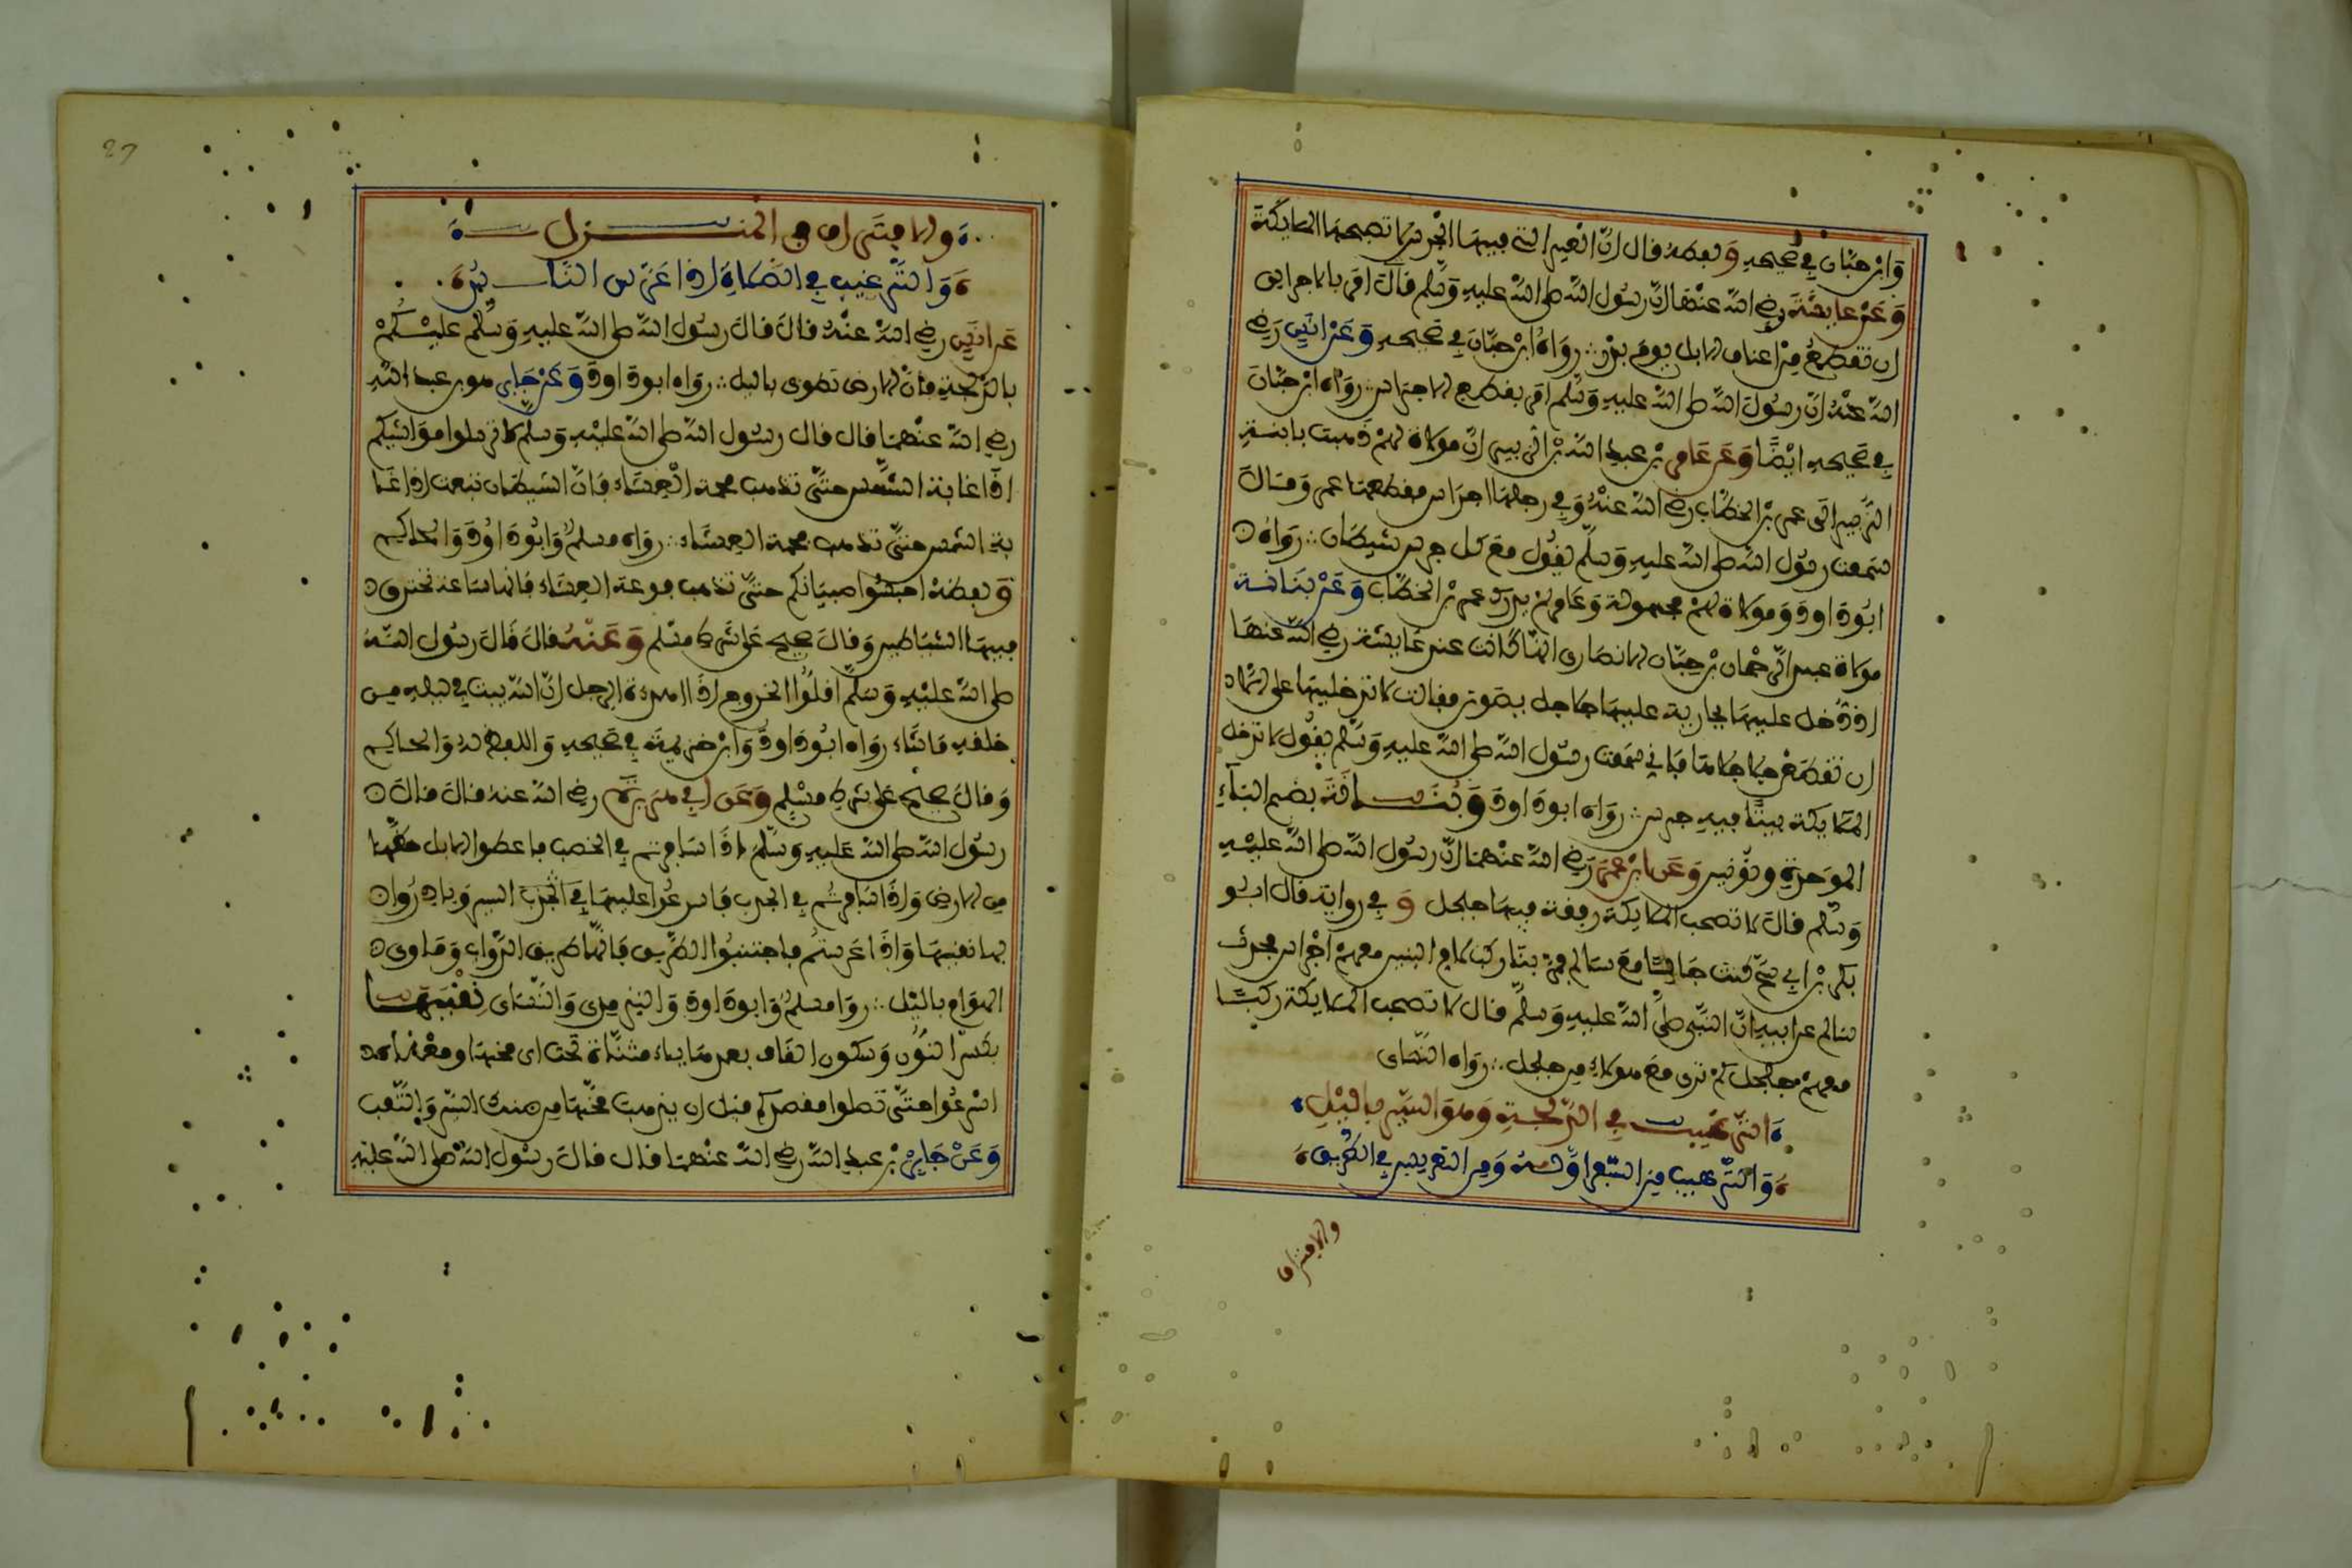 وَابْن حبّان في صحيحه وَلفظه قال انّ العير التي فيها الجرس لا تصحبها الملايكة
وَعَنْ عايشة رضي الله عنها انّ رسول الله صلى الله عليه وسلم قال امر بالاجراس
ان تقطع من اعناق الابل يوم بدر ∴ رواه ابن حبّان في صحيحه وَعَنْ انس رضي
الله عنه انّ رسول الله صلى الله عليه وسلم امر بقطع الاجراس ∴ رواه ابن حبّان
في صحيحه ايضًا وَعَن عَامر بن عبد الله بن الزبير انّ مولاة لهم ذهبت بابنة
الزبير الى عمر بن الخطاب رضي الله عنه وفي رجلها اجراس فقطعها عمر وقال
سمعت رسول الله صلى الله عليه وسلم يقول مع كل جرس شيطان ∴ رواه
ابوداود ومولاة لهم مجهولة وعامر لم يدرك عمر بن الخطاب وَعَنْ بنانة
مولاة عبد الرحمان بن حيّان الانصاري انّها كانت عند عايشة رضي الله عنها
اذ دُخل عليها بجارية عليها جلاجل يصوتن فقالت لا تدخلنها علي الا
ان تقطعن جلاجلها فاني سمعت رسول الله صلى الله عليه وسلم يقول لا تدخل
الملايكة بيتًا فيه جرس ∴ رواه ابوداود وَبُنَــانة بضم الباء
الموحدة ونونين وَعَن ابن عمر رضي الله عنهما انّ رسول الله صلى الله عليه
وسلم قال لا تصحب الملايكة رفقة فيها جلجل وَفي رواية قال ابو
بكر بن ابي شيخ كنت جالسًا مع سالم فمرّ بنا ركب لام البنين معهم اجراس فحدث
سالم عن ابيه انّ النبي صلى الله عليه وسلم قال لا تصحب الملايكة ركبًا
معهم جلجل كم ترى مع هولاء من جلجل ∴ رواه النساي
الترغيب في الدلجة وهو السير بالليل
وَالترهيب من السفر اوله ومن التعريس في الطريق
والافتراق
27
والافتراق في المنــزل
وَالترغيب في الصلاة اذا عرس النــاس
عن انس رضي الله عنه قال قال رسول الله صلى الله عليه وسلم عليكم
بالدلجة فانّ الارض تطوى بالليل ∴ رواه ابوداود وَعَنْ جَابر هو بن عبد الله
رضي الله عنهما قال قال رسول الله صلى الله عليه وسلم لا ترسلوا مواشيكم
اذا غابت الشمس حتى تذهب فحمة العشاء فانّ الشيطان تبعث اذا غا
بت الشمس حتى تذهب فحمة العشاء ∴ رواه مسلم وابوداود والحاكم
ولفظه احبسوا صبيانكم حتى تذهب فوعة العشاء فانها ساعة تخترق
فيها الشياطين وقال صحيح على شرط مسلم وَعَنْهُ قال قال رسول الله
صلى الله عليه وسلم اقلوا الخروج اذا هدت الرجل انّ الله يبث في ليله من
خلقه ما شاء رواه ابوداود وابن خزيمة في صحيحه واللفظ له والحاكم
وقال صحيح على شرط مسلم وَعَن ابي هريرة رضي الله عنه قال قال
رسول الله صلى الله عليه وسلم اذا سافرتم في الخصب فاعطوا الابل حظها
من الارض واذا سافرتم في الجدب فاسرعوا عليها في الجدب السير وبادروا
بها نقيها واذا عرستم فاجتنبوا الطريق فانها طريق الدّواب وماوى
الهوام بالليل ∴ رواه مسلم وابوداود والترمذي والنساي نِقْيَهــا
بكسر النون وسكون القاف بعدها ياء مثناة تحت اي مخها ومعناه
اسرعوا حتى تصلوا مقصدكم قبل ان يذهب مخها من ضنك السير والتعب
وَعَنْ جَابر بن عبد الله رضي الله عنهما قال قال رسول الله صلى الله عليه